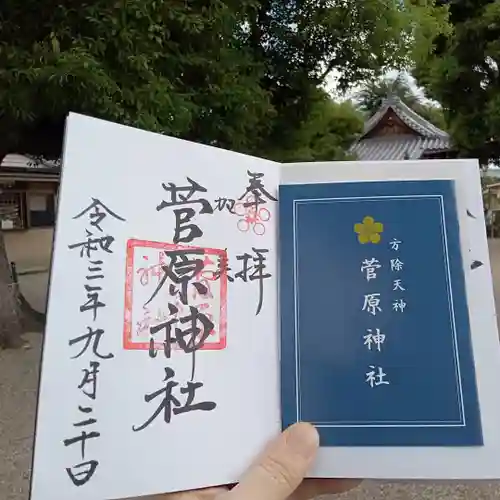 奉拝
菅原神社
令和三年九月二十日
方除天神
菅原神社